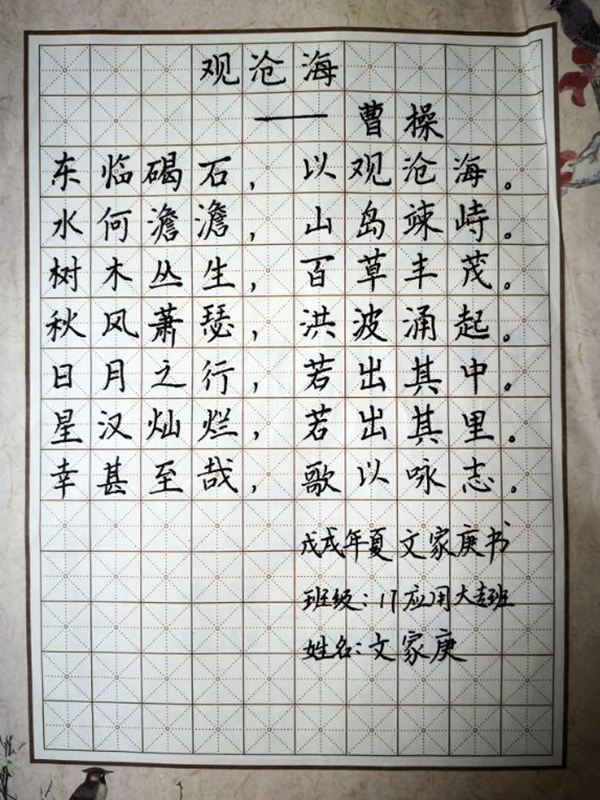 观沧海
——曹操
东临碣石，以观沧海。
水何澹澹，山岛竦峙。
树木丛生，百草丰茂。
秋风萧瑟，洪波涌起。
日月之行，若出其中。
星汉灿烂，若出其里。
幸甚至哉，歌以咏志。
戊戌年夏 文家庚书
班级：17应用大专班
姓名：文家庚